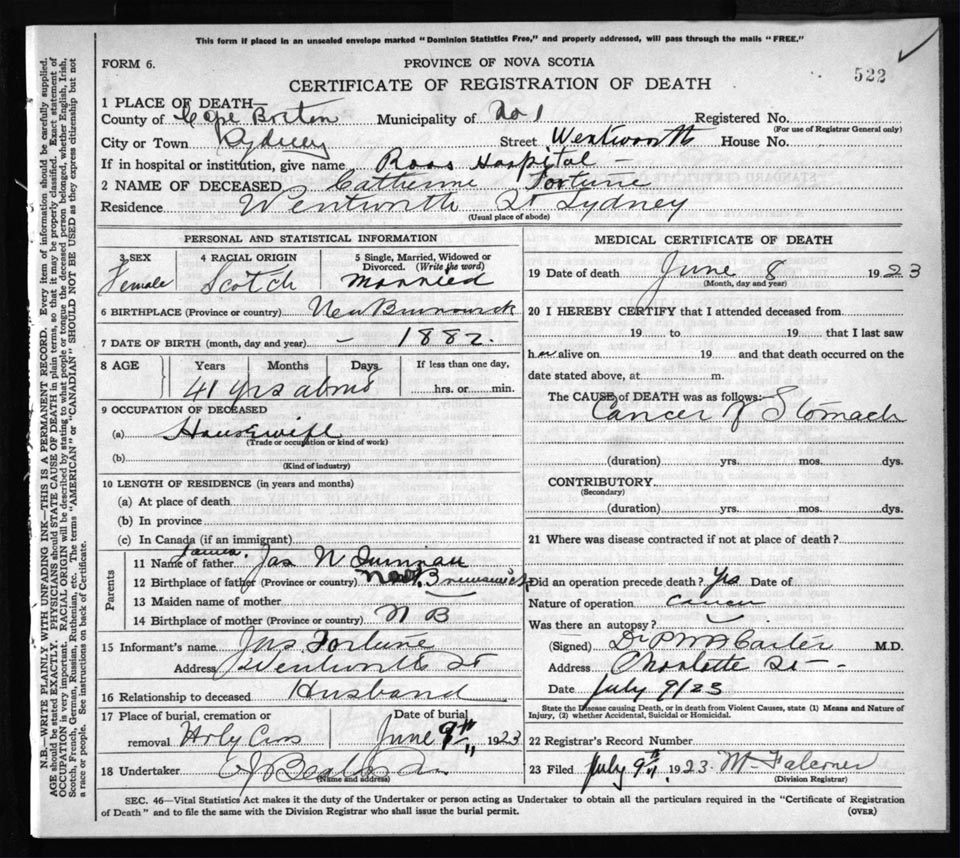 This form if placed in an unsealed envelope marked "Dominion Statistics Free," and properly addressed, will pass through the mails "FREE."
FORM 6.
PROVINCE OF NOVA SCOTIA
522
CERTIFICATE OF REGISTRATION OF DEATH
1 PLACE OF DEATH—
County of Cape Breton Municipality of No 1 Registered No.
(For use of Registrar General only)
City or Town Sydney Street Wentworth House No.
If in hospital or institution, give name Ross Hospital
2 NAME OF DECEASED Catherine Fortune
Residence Wentworth St Sydney
(Usual place of abode)
PERSONAL AND STATISTICAL INFORMATION
3 SEX 4 RACIAL ORIGIN 5 Single, Married, Widowed or Divorced. (Write the word)
Female Scotch Married
6 BIRTHPLACE (Province or country) New Brunswick
7 DATE OF BIRTH (month, day and year) – 1882.
8 AGE Years Months Days If less than one day,
41 yrs hrs. or min.
9 OCCUPATION OF DECEASED
(a) Housewife
(Trade or occupation or kind of work)
(b)
(Kind of industry)
10 LENGTH OF RESIDENCE (in years and months)
(a) At place of death
(b) In province
(c) In Canada (if an immigrant)
Parents
James
11 Name of father Jas
12 Birthplace of father (Province or country) New Brunswick
13 Maiden name of mother
14 Birthplace of mother (Province or country) N B
15 Informant's name Jas Fortune
Address Wentworth St
16 Relationship to deceased Husband
17 Place of burial, cremation or removal Holy Cross
Date of burial June 9th 1923
18 Undertaker
(Name and address)
MEDICAL CERTIFICATE OF DEATH
19 Date of death June 8 1923
(Month, day and year)
20 I HEREBY CERTIFY that I attended deceased from
19 to 19 that I last saw
her alive on 19 and that death occurred on the
date stated above, at m.
The CAUSE of DEATH was as follows:
Cancer of Stomach
(duration) yrs. mos. dys.
CONTRIBUTORY
(Secondary)
(duration) yrs. mos. dys.
21 Where was disease contracted if not at place of death?
Did an operation precede death? Yes Date of
Nature of operation
Was there an autopsy?
(Signed) Dr M.D.
Address Charlotte St
Date July 9/23
State the Disease causing Death, or in death from Violent Causes, state (1) Means and Nature of Injury, (2) whether Accidental, Suicidal or Homicidal.
22 Registrar's Record Number
23 Filed July 9th 1923 M Falconer
(Division Registrar)
SEC. 46—Vital Statistics Act makes it the duty of the Undertaker or person acting as Undertaker to obtain all the particulars required in the "Certificate of Registration
of Death" and to file the same with the Division Registrar who shall issue the burial permit.
(OVER)
N.B.—WRITE PLAINLY WITH UNFADING INK—THIS IS A PERMANENT RECORD. Every item of information should be carefully supplied.
AGE should be stated EXACTLY. PHYSICIANS should STATE CAUSE OF DEATH in plain terms, so that it may be properly classified. Exact statement of
OCCUPATION is very important. RACIAL ORIGIN will be described by stating to what people or tongue the deceased person belonged, whether English, Irish,
Scotch, French, German, Russian, Ruthenian, etc. The terms "AMERICAN" or "CANADIAN" SHOULD NOT BE USED as they express citizenship but not
a race or people. See instructions on back of Certificate.